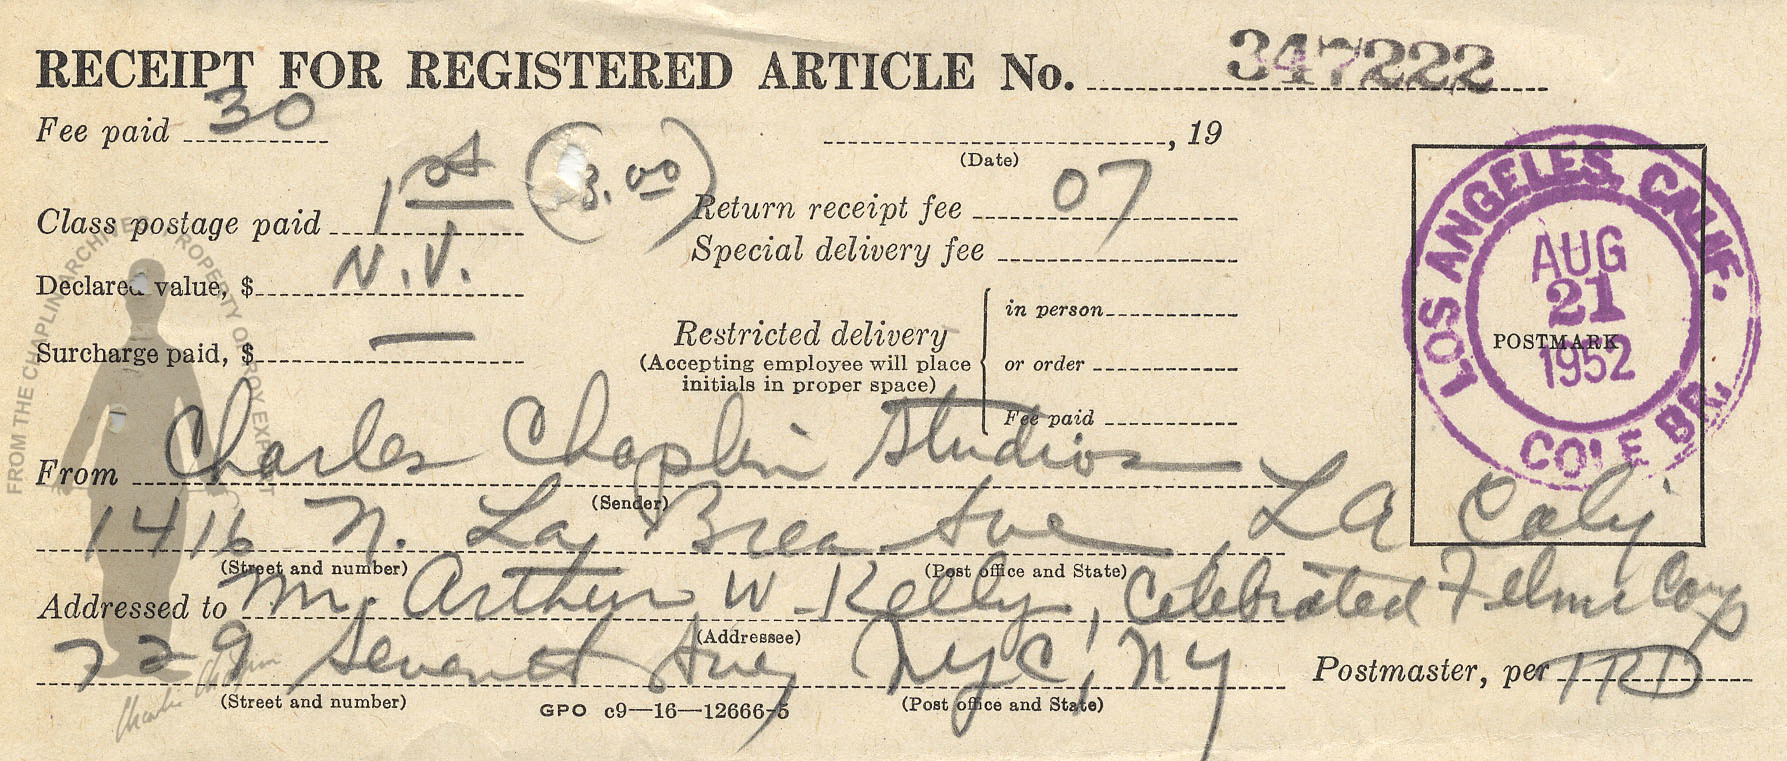 RECEIPT FOR REGISTERED ARTICLE No. 347222
Fee paid 30
(Date) , 19
Class postage paid 1st (3.00)
Return receipt fee 07
Special delivery fee
Declared value, $ N.V.
Surcharge paid, $ —
Restricted delivery
(Accepting employee will place
initials in proper space)
in person
or order
Fee paid
LOS ANGELES, CALIF.
AUG
21
POSTMARK
1952
COLE BR.
From Charles Chaplin Studios
(Sender)
1416 N. La Brea Ave, LA Calif
(Street and number) (Post office and State)
Addressed to Mr. Arthur W. Kelly, Celebrated Films Corp
(Addressee)
729 Seventh Ave, NYC, NY
(Street and number) (Post office and State)
GPO c9—16—12666-5
Postmaster, per
FROM THE CHAPLIN ARCHIVES PROPERTY OF ROY EXPORT
Charlie Chaplin